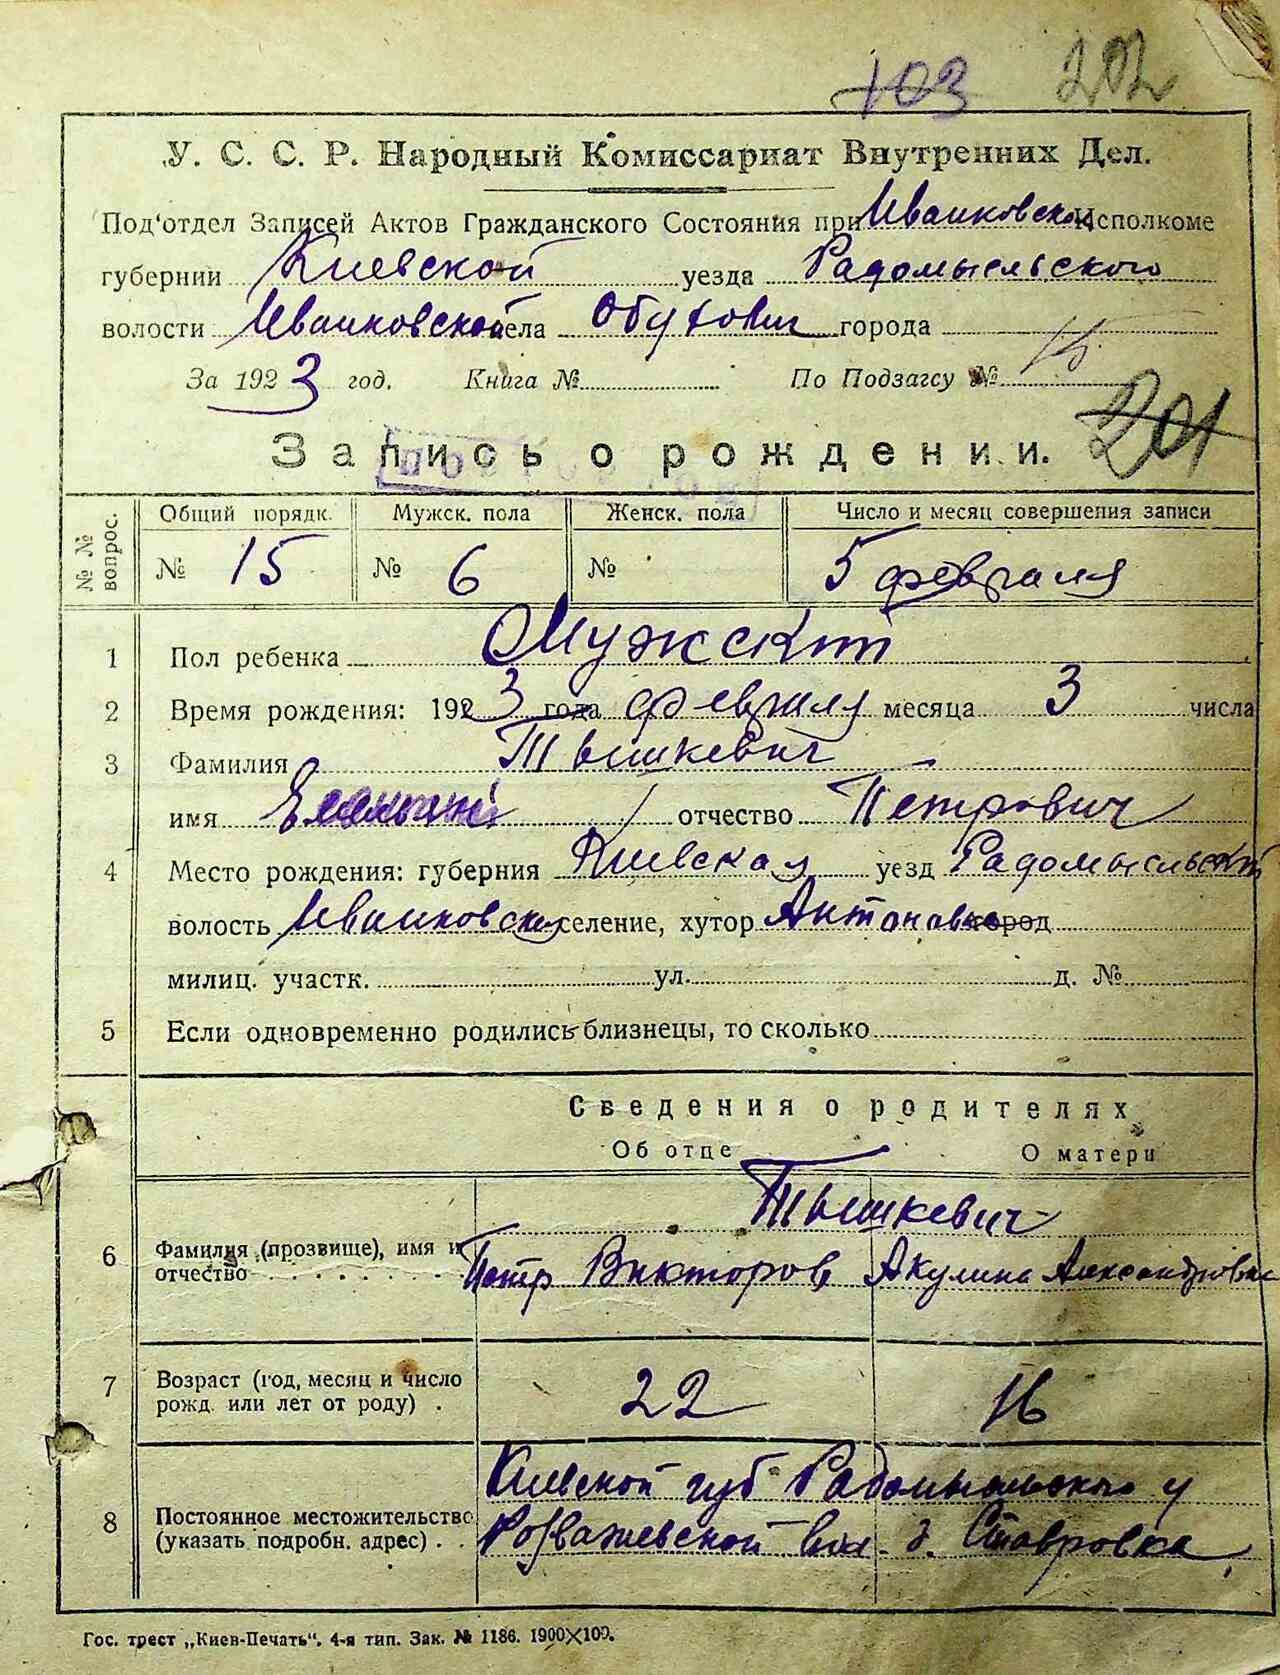 103 202
У. С. С. Р. Народный Комиссариат Внутренних Дел.
Под'отдел Записей Актов Гражданского Состояния при Иванковском Исполкоме
губернии Киевской уезда Радомысльского
волости Иванковской села Обуховичи города
За 1923 год. Книга № По Подзагсу № 15
201
Запись о рождении.
№ № вопрос. Общий порядк. Мужск. пола Женск. пола Число и месяц совершения записи
№ 15 № 6 № 5 февраля
1 Пол ребенка Мужской
2 Время рождения: 1923 года февраля месяца 3 числа
3 Фамилия Тышкевич
имя отчество Петрович
4 Место рождения: губерния Киевская уезд Радомысльский
волость Иванковская селение, хутор Антоновка город
милиц. участк. ул. д. №
5 Если одновременно родились близнецы, то сколько
Сведения о родителях
Об отце О матери
Тышкевич
6 Фамилия (прозвище), имя и
отчество Петр Викторов Акулина Александровна
7 Возраст (год, месяц и число
рожд. или лет от роду) . 22 16
Киевской губ Радомысльского у
8 Постоянное местожительство
(указать подробн. адрес) . . Розважевской вол. д. Ставровка
Гос. трест „Киев-Печать“. 4-я тип. Зак. № 1186. 1900X100.